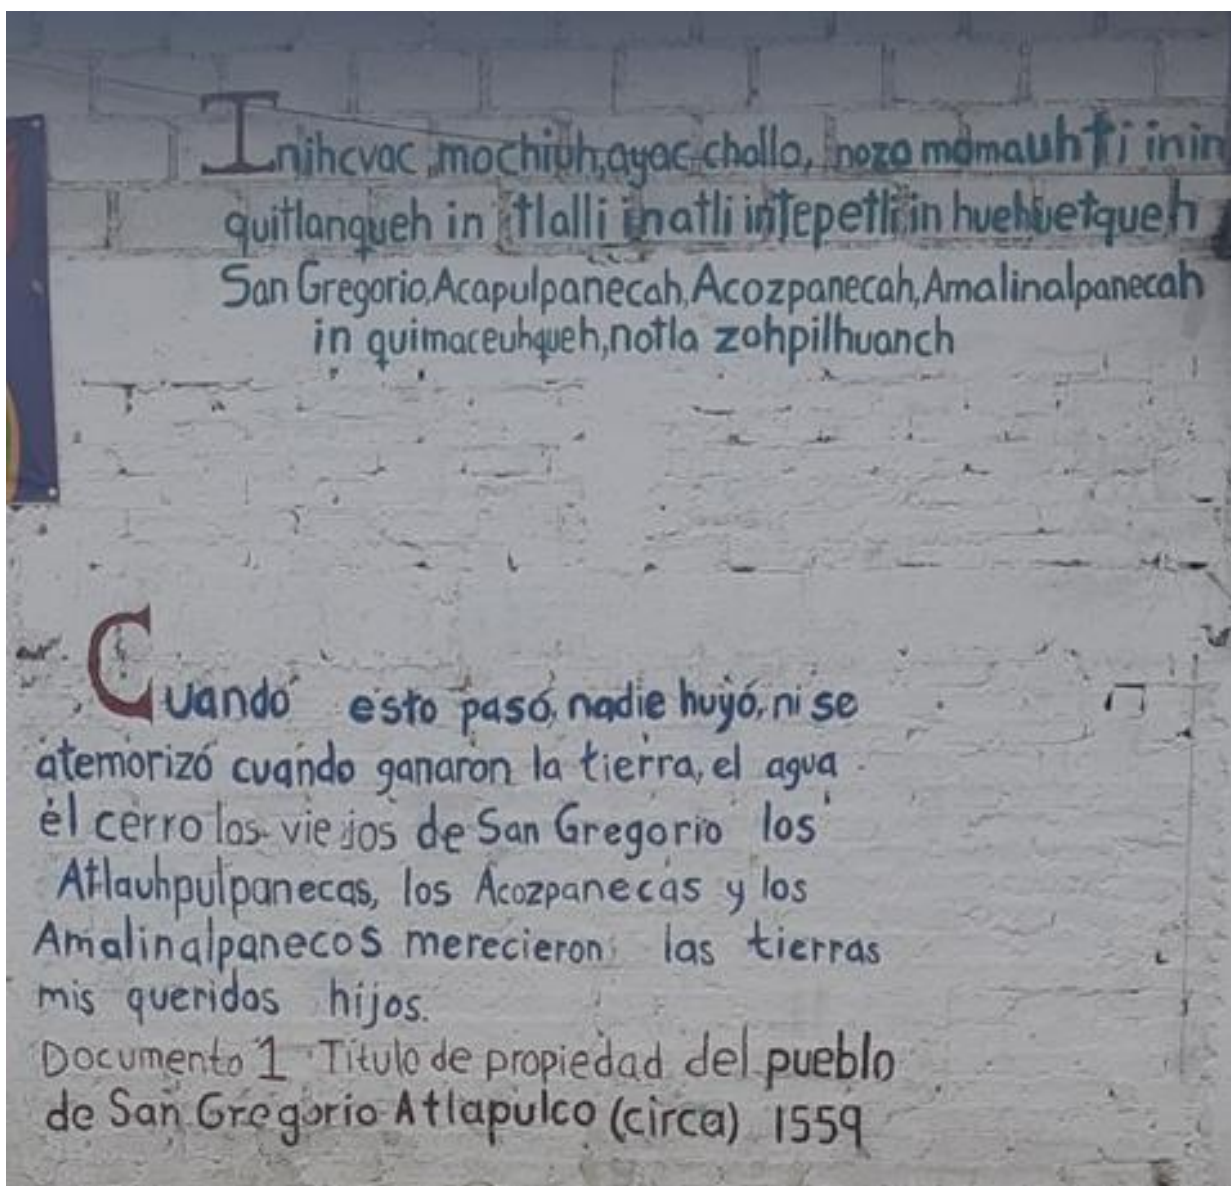 Inihcvac mochiuh, ayac chollo, nozo momauhti inin
quitlanqueh in tlalli inatli intepetli in huehuetqueh
San Gregorio, Acapulpanecah, Acozpanecah, Amalinalpanecah
in quimaceuhqueh, notla zohpilhuanch
Cuando esto pasó, nadie huyó, ni se
atemorizó cuando ganaron la tierra, el agua
el cerro los viejos de San Gregorio los
Atlauhpulpanecas, los Acozpanecas y los
Amalinalpanecos merecieron las tierras
mis queridos hijos.
Documento 1 Titulo de propiedad del pueblo
de San Gregorio Atlapulco (circa) 1559